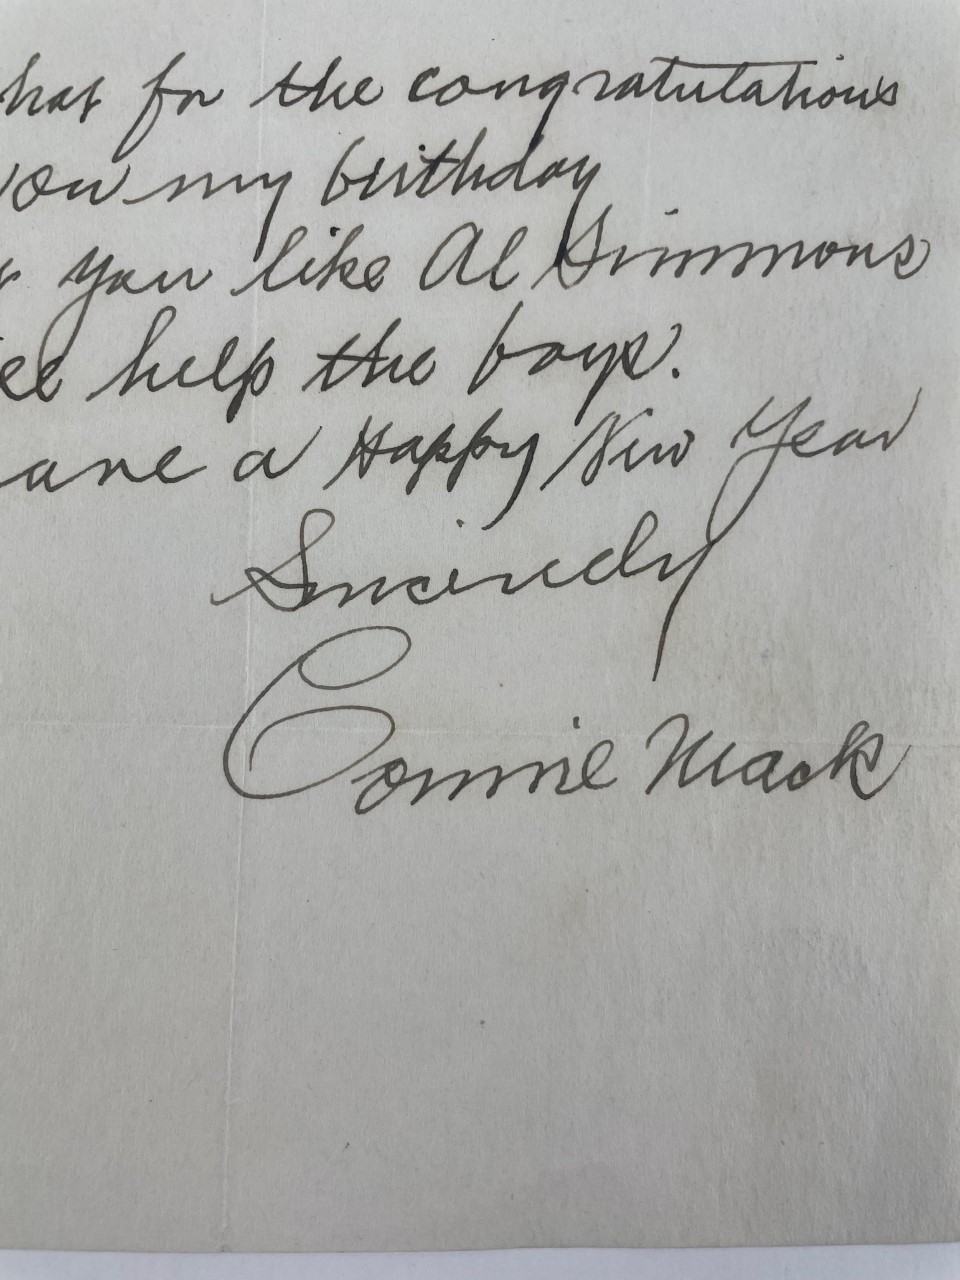 that for the congratulations
on my birthday
you like Al Simmons
help the boys.
have a Happy New Year
Sincerely
Connie Mack